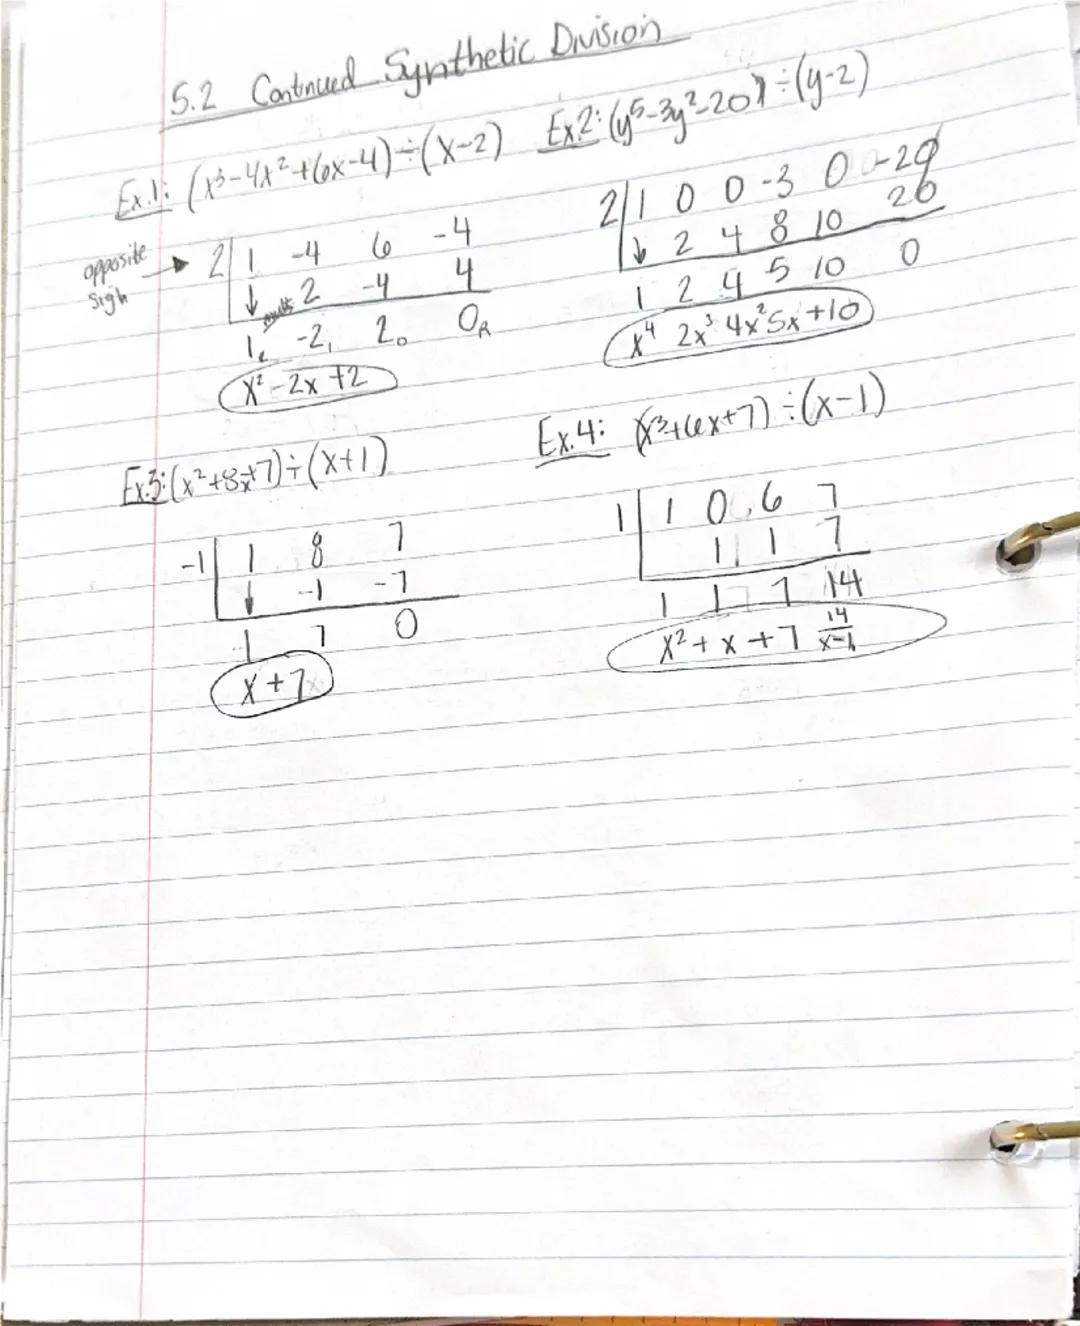 5.2 Continued Synthetic Division
Ex.1: (x³-4x²+6x-4)÷(x-2)
opposite sign → 2| 1 -4 6 -4
↓ 2 -4 4
1 -2₁ 2₀ 0R
x²-2x+2
Ex.2: (y⁵-3y²-20)÷(y-2)
2| 1 0 0 -3 0 -20
↓ 2 4 8 10 20
1 2 4 5 10 0
x⁴ 2x³ 4x² 5x +10
Ex.3: (x²+8x+7)÷(x+1)
-1| 1 8 7
↓ -1 -7
1 7 0
x+7
Ex.4: (x³+6x+7)÷(x-1)
1| 1 0 6 7
1 1 7
1 1 7 14
x²+x+7 14/x-1